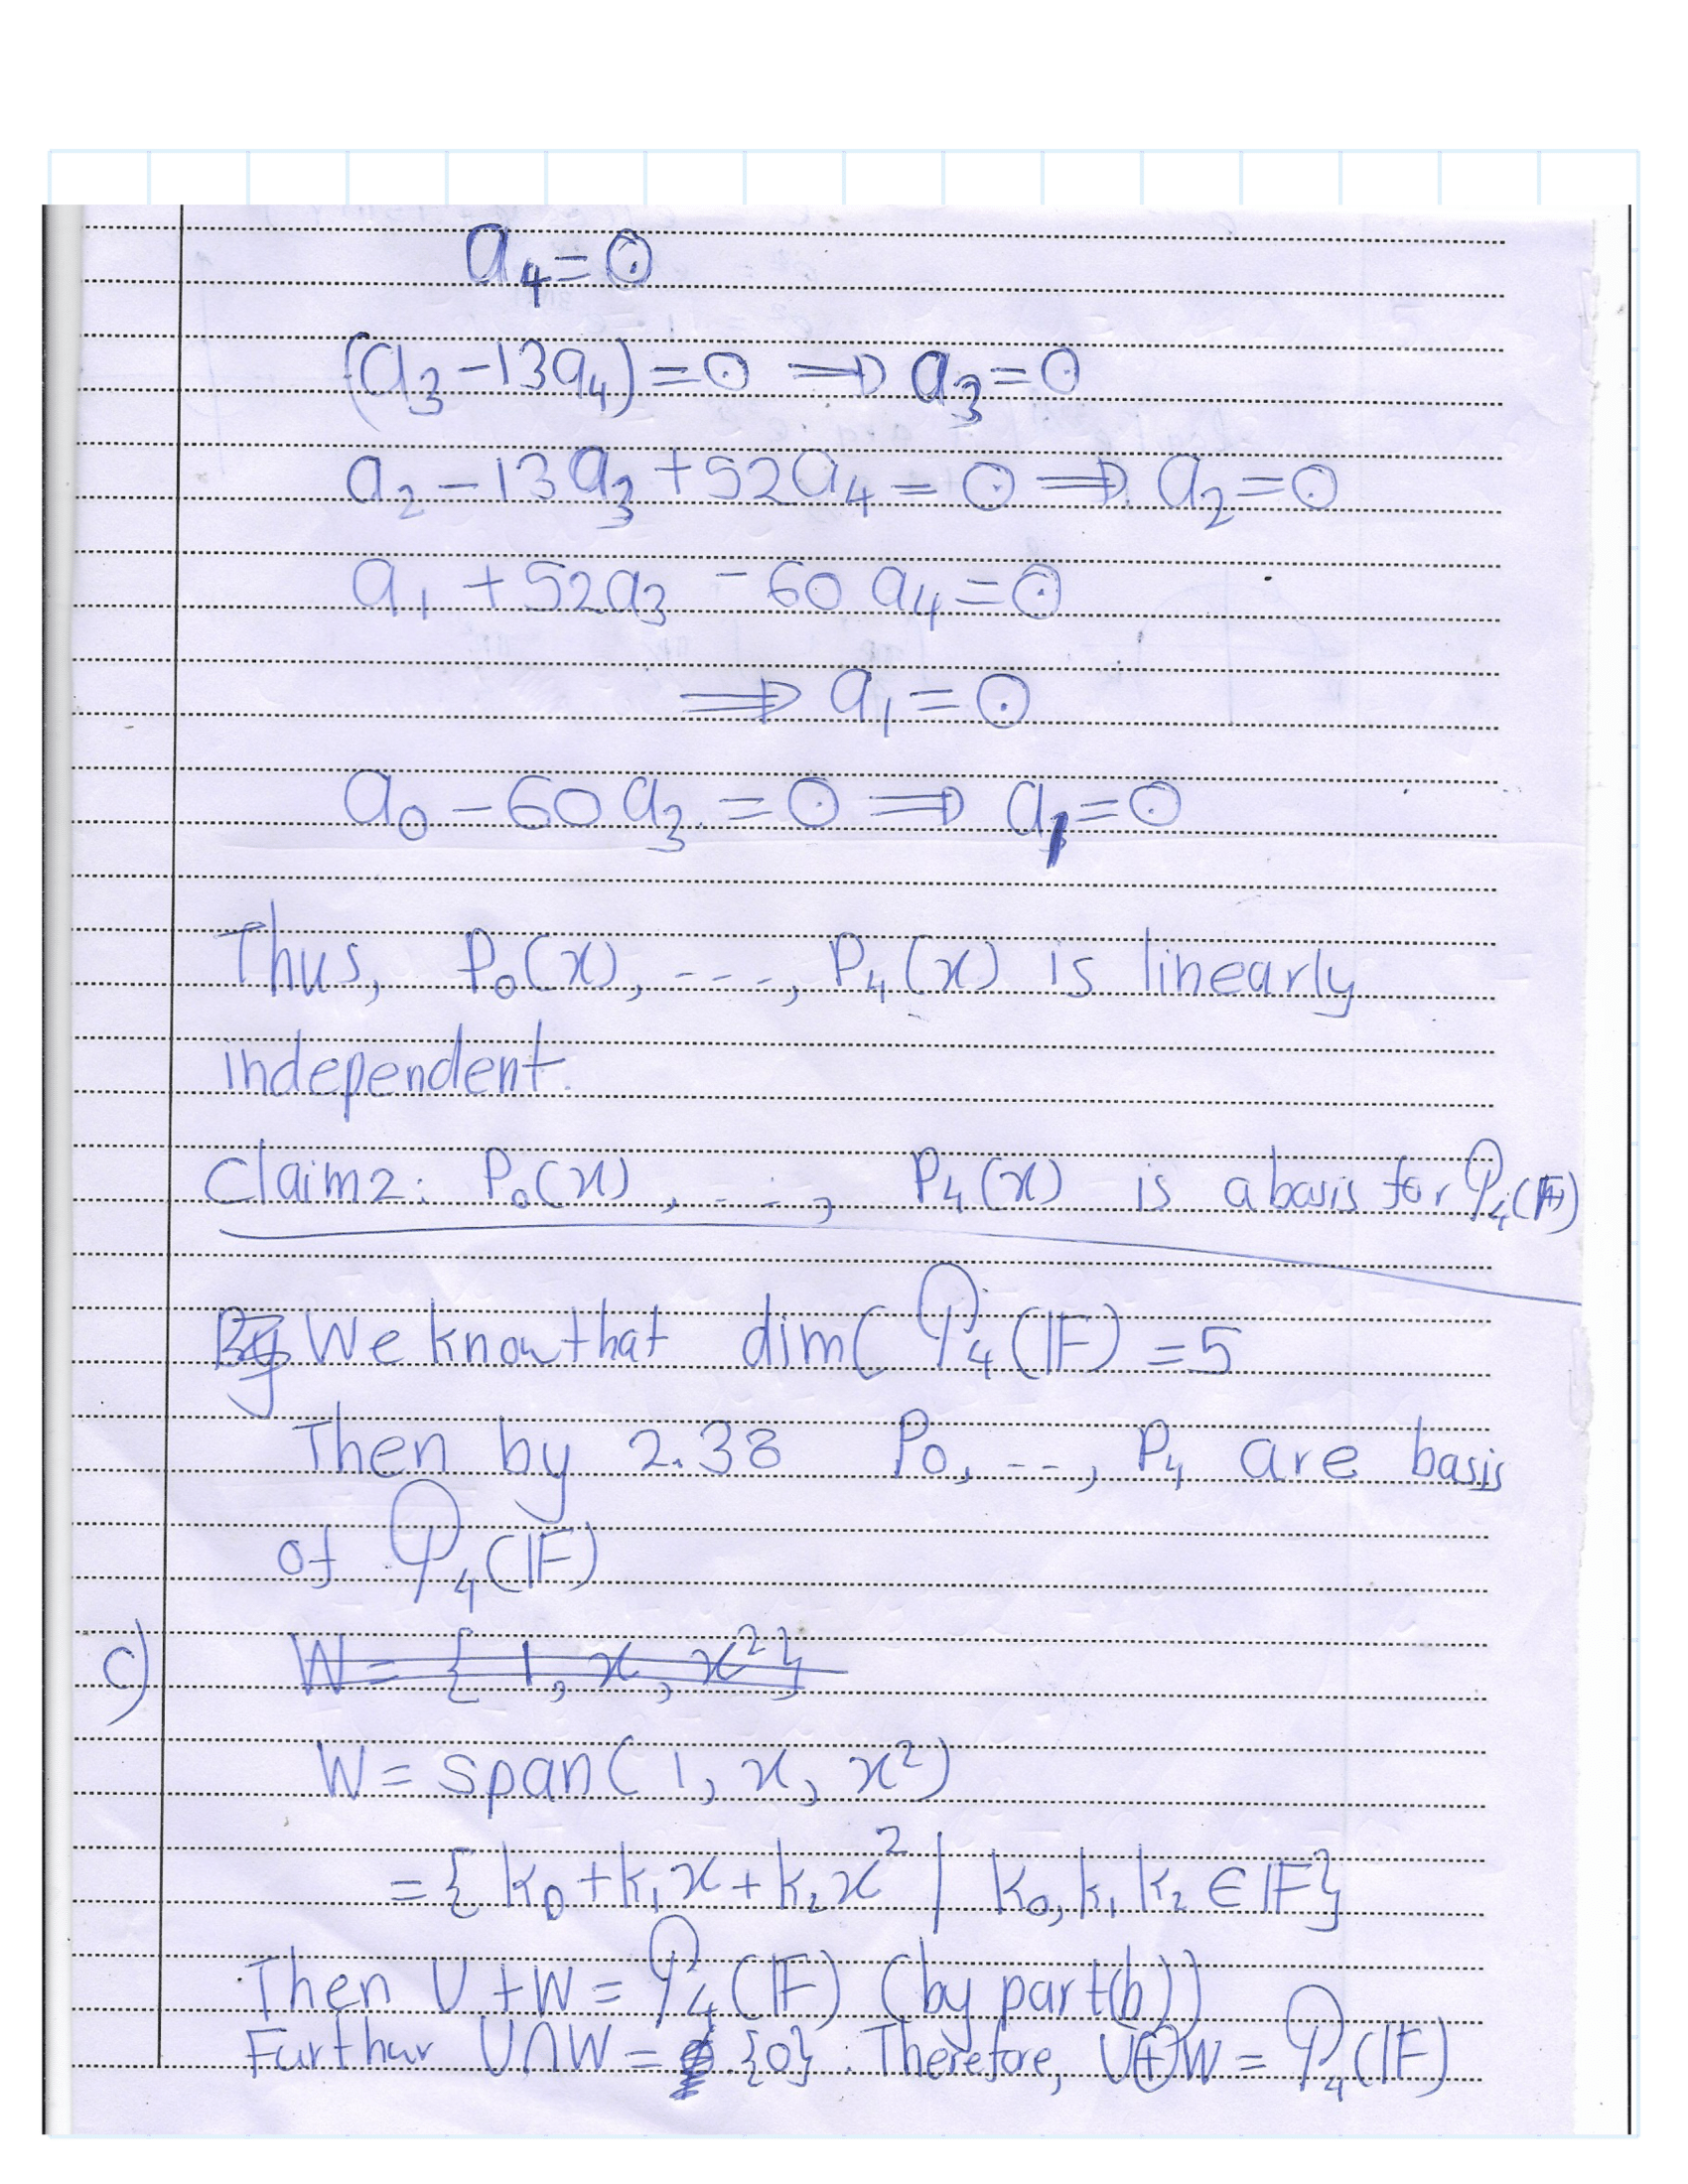 a₄ = 0
(a₃ - 13a₄) = 0 ⟹ a₃ = 0
a₂ - 13a₃ + 52a₄ = 0 ⟹ a₂ = 0
a₁ + 52a₃ - 60a₄ = 0
⟹ a₁ = 0
a₀ - 60a₃ = 0 ⟹ a₁ = 0
Thus, P₀(x), ----, P₄(x) is linearly
independent.
Claim2: P₀(x), ----, P₄(x) is a basis for 𝒫₄(𝔽)
By We know that dim(𝒫₄(𝔽) = 5
Then by 2.38 P₀, ---, P₄ are basis
of 𝒫₄(𝔽)
c) W = {1, x, x²}
W = span(1, x, x²)
= {k₀ + k₁x + k₂x² | k₀, k₁ k₂ ∈ 𝔽}
Then U + W = 𝒫₄(𝔽) (by part(b))
Furthur U∩W = {0}. Therefore, U⊕W = 𝒫₄(𝔽)